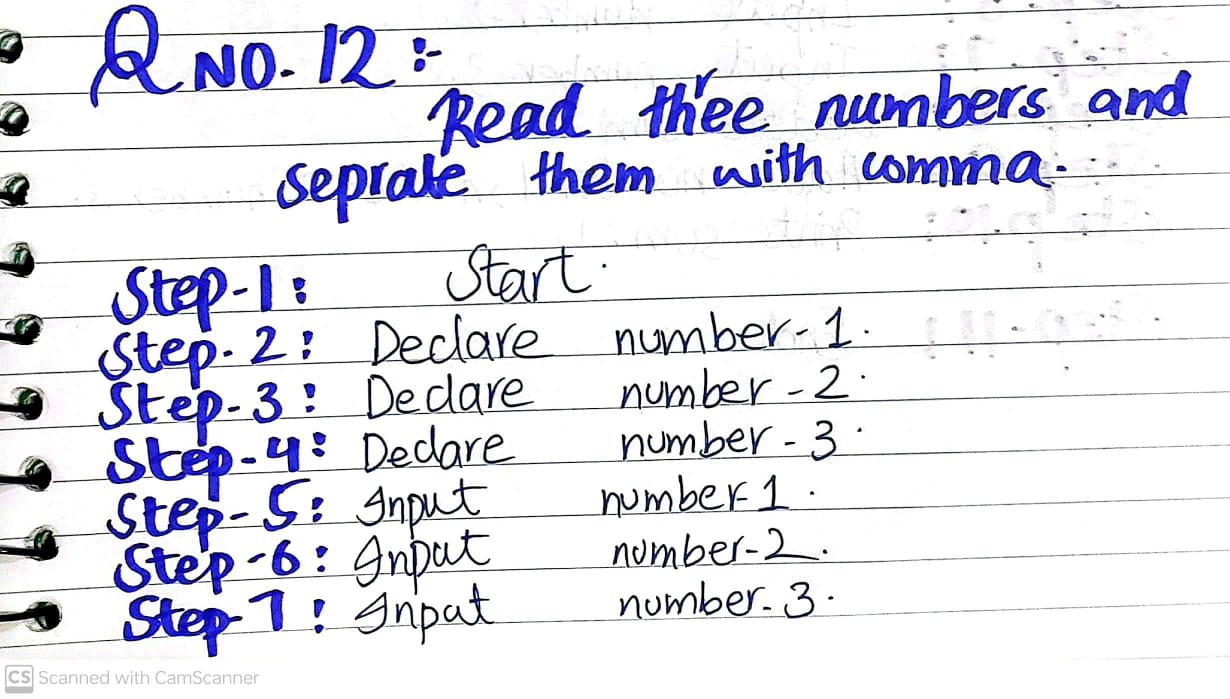 Q NO. 12 :-
Read three numbers and
seprate them with comma.
Step-1: Start.
Step-2: Declare number-1.
Step-3: Declare number-2.
Step-4: Declare number-3.
Step-5: Input number-1.
Step-6: Input number-2.
Step-7: Input number-3.
CS Scanned with CamScanner